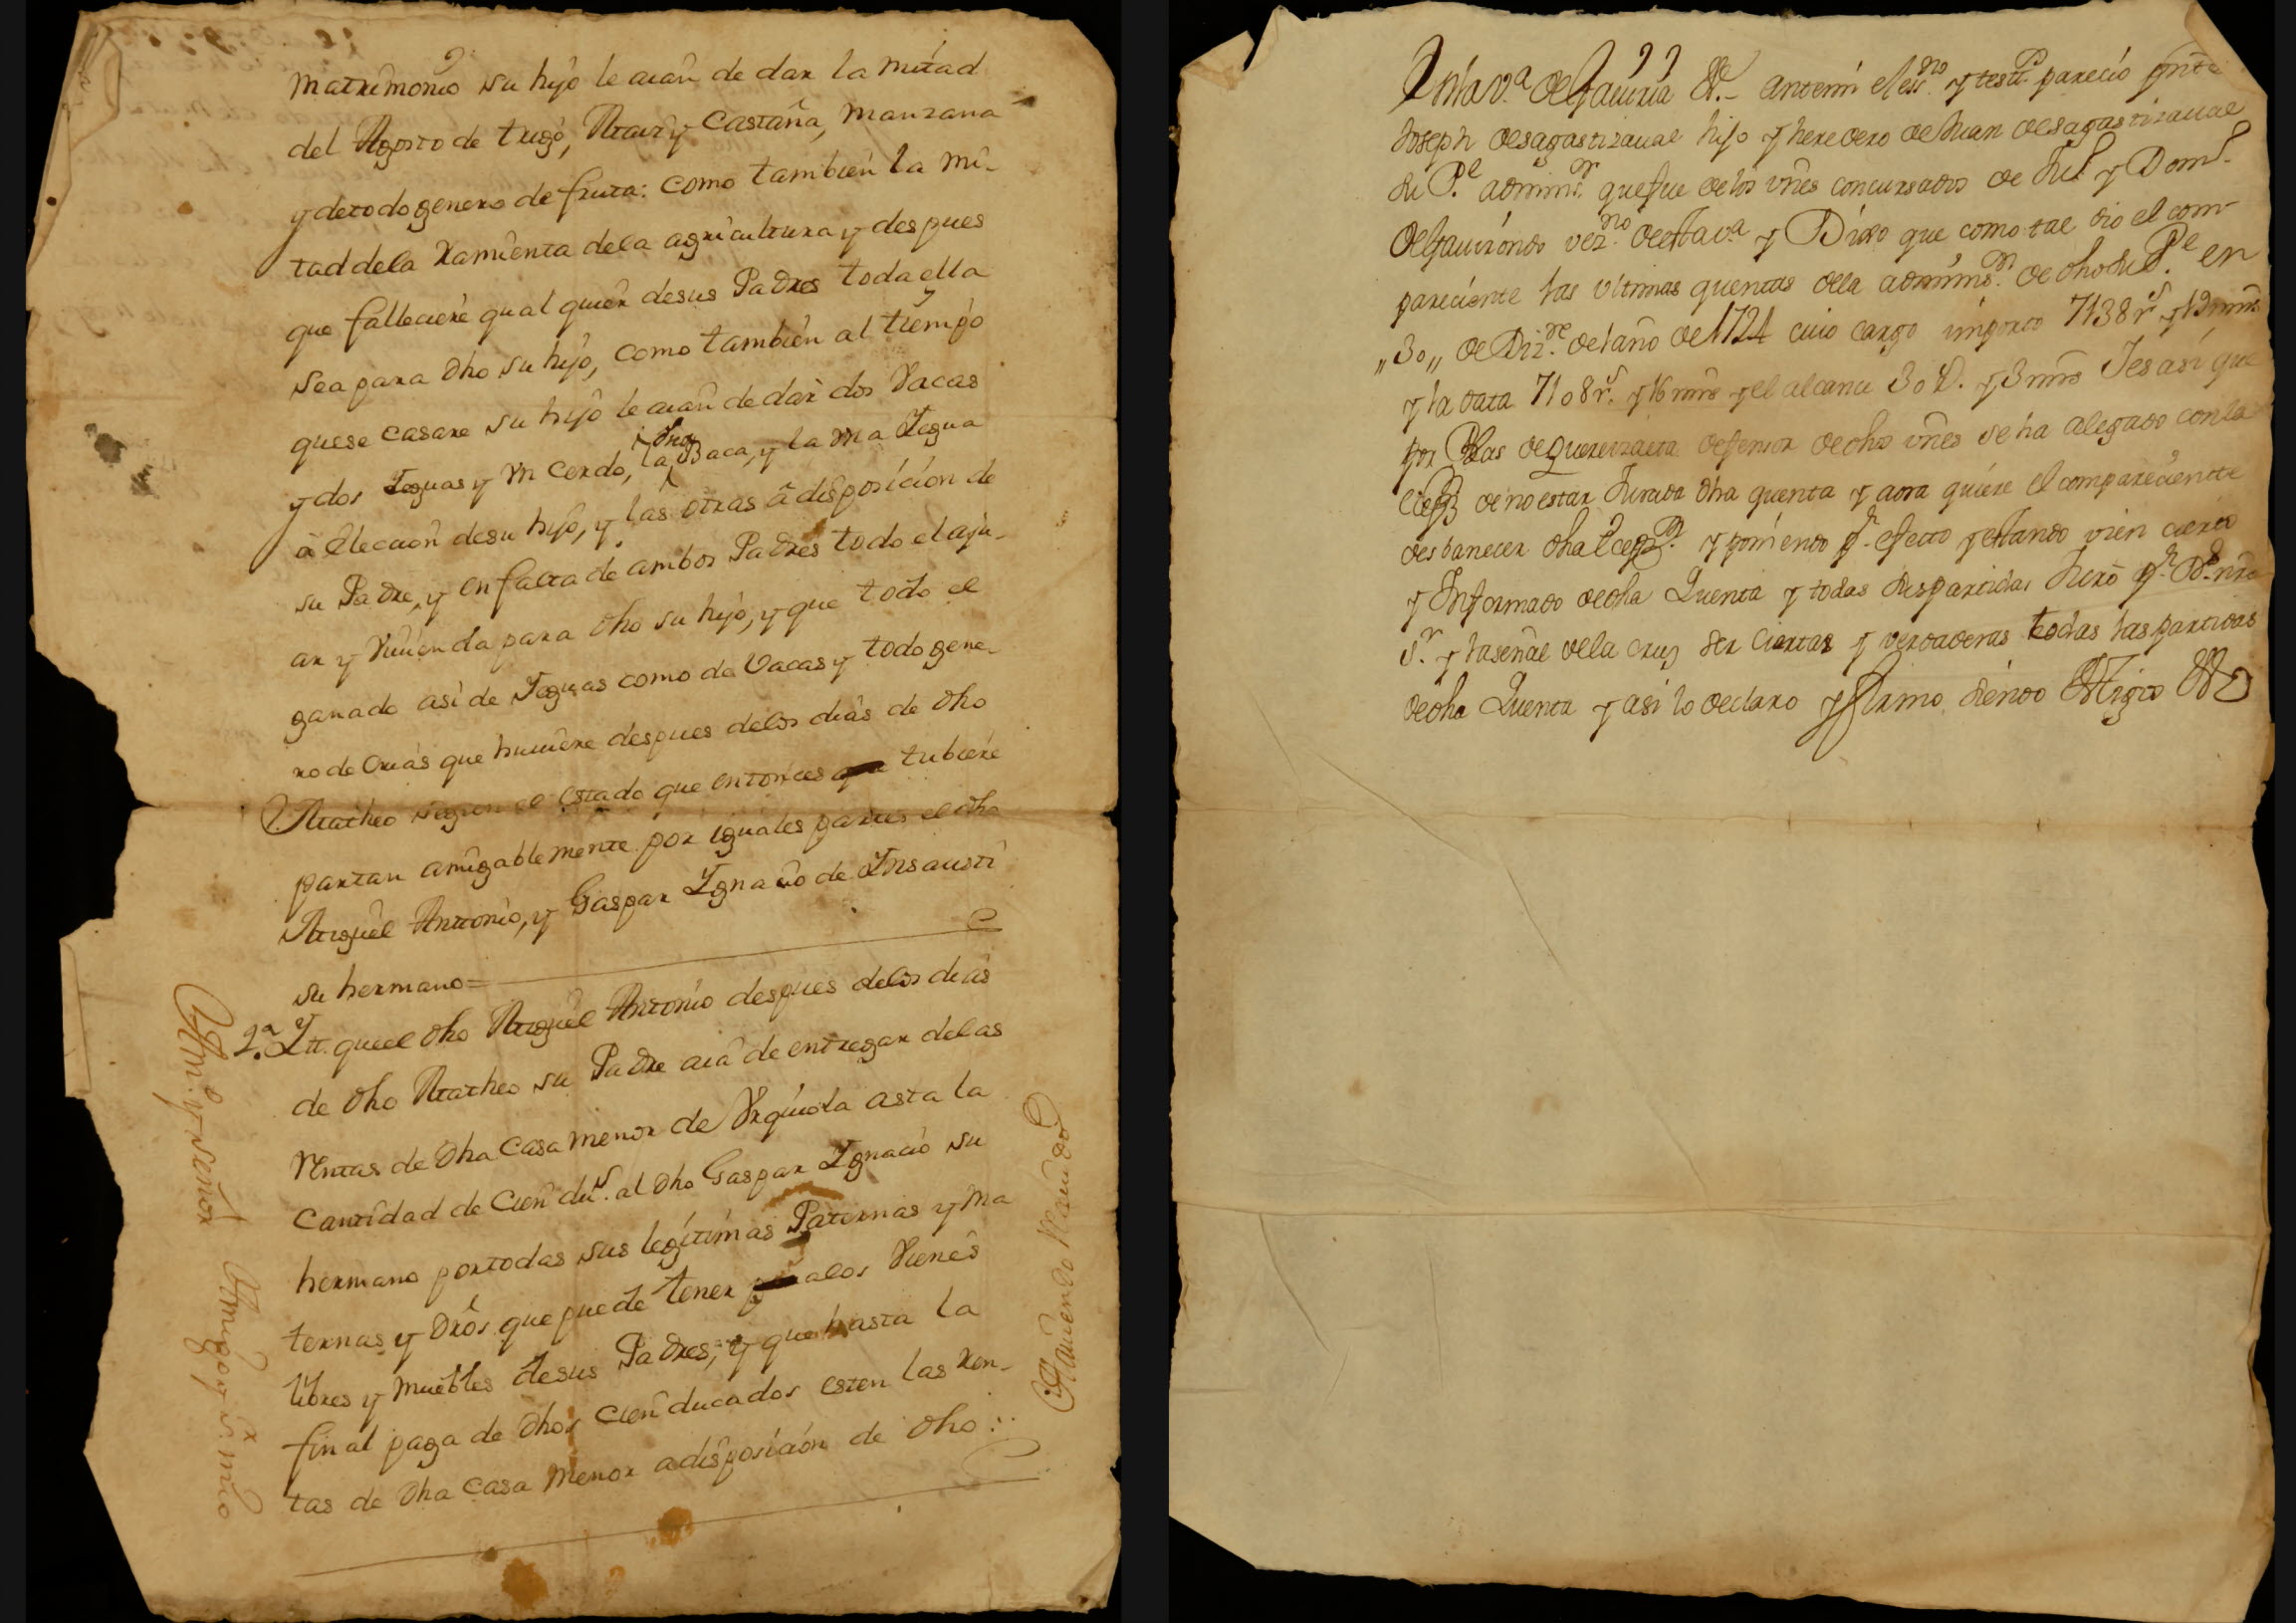 matrimonio su hijo le aian de dar la mitad
del Agosto de trigo, Maiz y Castaña, manzana
y de todo genero de fruta: como tambien la mi-
tad dela xamienta dela agricultura y despues
que falleciere qual quier desus Padres toda ella
sea para dho su hijo, como tambien al tiempo
quese casare su hijo le aian de dar dos Vacas
y dos Yeguas y Vn Cerdo, la Vna Baca, y la Vna Yegua
à Eleccion desu hijo, y las otras à disposicion de
su Padre, y en falta de ambos Padres todo el aju-
ar y Viuienda para dho su hijo, y que todo el
ganado asi de Yeguas como de Vacas y todo gene-
ro de Crias que huuiere despues delos dias de dho
Matheo segun el estado que entonces tubiere
partan amigablemente por iguales partes el dho
Miguel Antonio, y Gaspar Ygnacio de Ynsausti
su hermano=
2.ª Ytt. queel dho Miguel Antonio despues delos dias
de dho Matheo su Padre aia de entregar delas
Rentas de dha Casa menor de Vrquiola asta la
Cantidad de Cien du.s al dho Gaspar Ygnacio su
hermano por todas sus legitimas Paternas y Ma
ternas y dros que puede tener alos Vienes
libres y muebles desus Padres, y que hasta la
final paga de dhos Cien ducados esten las Ren-
tas de dha Casa menor a disposicion de dho :.
Am.o y señor Amigo y s.r mio
Hauiendo Hauido
En la v.a de Gauiria &.- antemi el ess.no y test.os parecio prnte
Joseph de sagastizaual hijo y heredero de Juan de sagastizaual
su P.e admin.or que fue delos vnes concursados de Ju.s y Dom.s
de Gauirondo vez.no de esta v.a y Dixo que como tal dio el com-
pareciente las vltimas quentas dela admins.on de dho su P.e en
,,30,, de Diz.re del año de 1724 cuio cargo importo 7138 r.s y 19 mrs
y la data 7108 r.s y 16 mrs y el alcance 30 r. y 3 mrs Y es asi que
por Blas de Querejazaeta defensor de dhos vnes se ha alegado contra
de no estar Jurada dha quenta y aora quiere el compareciente
desbanecer dha Excep.on y poniendo p.r efecto y estando vien cierto
y Informado de dha Quenta y todas sus partidas Juro p.r D.s nro
s.r y la señal de la cruz ser ciertas y verdaderas todas las partidas
de dha Quenta y asi lo declaro y firmo siendo